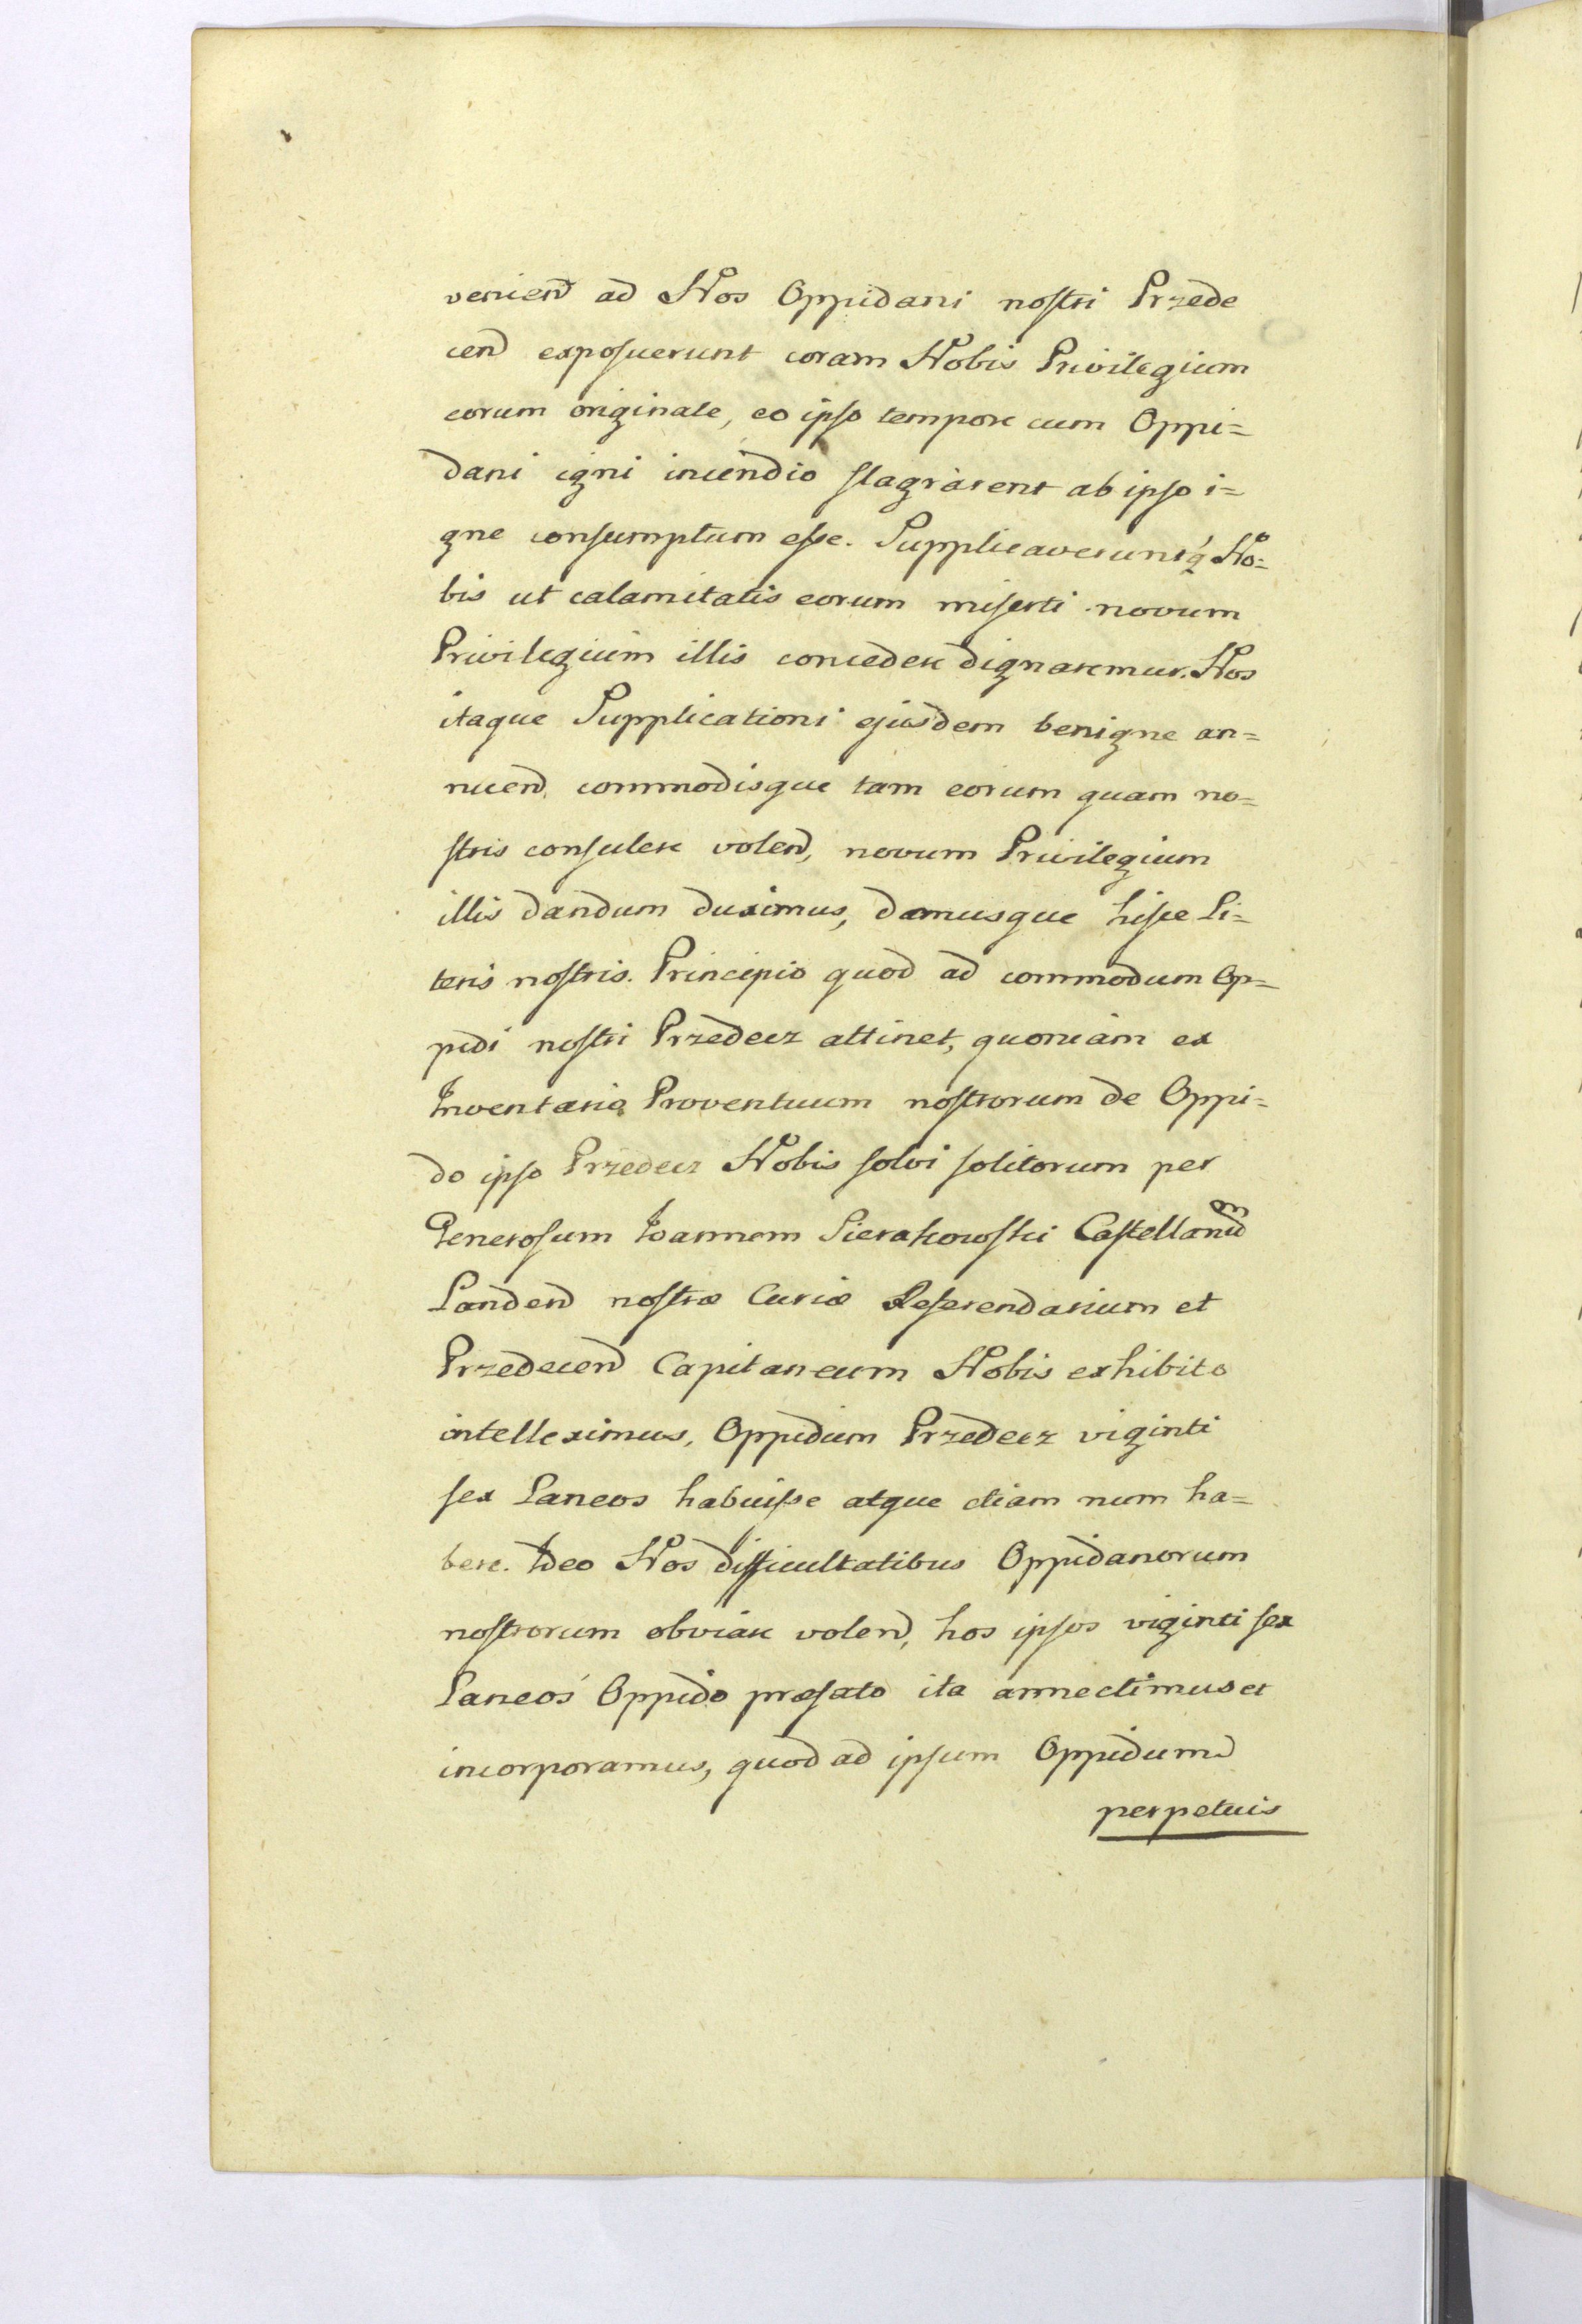 venien ad Nos Oppidani nostri Przede
cen exposuerunt coram Nobis Privilegium
eorum originale, eo ipso tempore cum Oppi=
dani igni incendio flagrarent ab ipso i=
gne consumptum esse. Supplicaverunt'q No=
bis ut calamitatis eorum miserti novum
Privilegium illis concedere dignaremur. Nos
itaque Supplicationi ejusdem benigne an=
nuen, commodisque tam eorum quam no=
stris consulere volen, novum Privilegium
illis dandum duximus, damusque hisce Li=
teris nostris. Principio quod ad commodum Op=
pidi nostri Przedecz attinet, quoniam ex
Inventario Proventuum nostrorum de Oppi=
do ipso Przedecz Nobis solvi solitorum per
Generosum Joannem Sierakowski Castellanum
Landen nostræ Curiæ Referendarium et
Przedecen Capitaneum Nobis exhibito
intelleximus, Oppidum Przedecz viginti
sex Laneos habuisse atque etiam num ha=
bere. Ideo Nos difficultatibus Oppidanorum
nostrorum obviare volen, hos ipsos viginti sex
Laneos Oppido præfato ita annectimus et
incorporamus, quod ad ipsum Oppidum
perpetuis